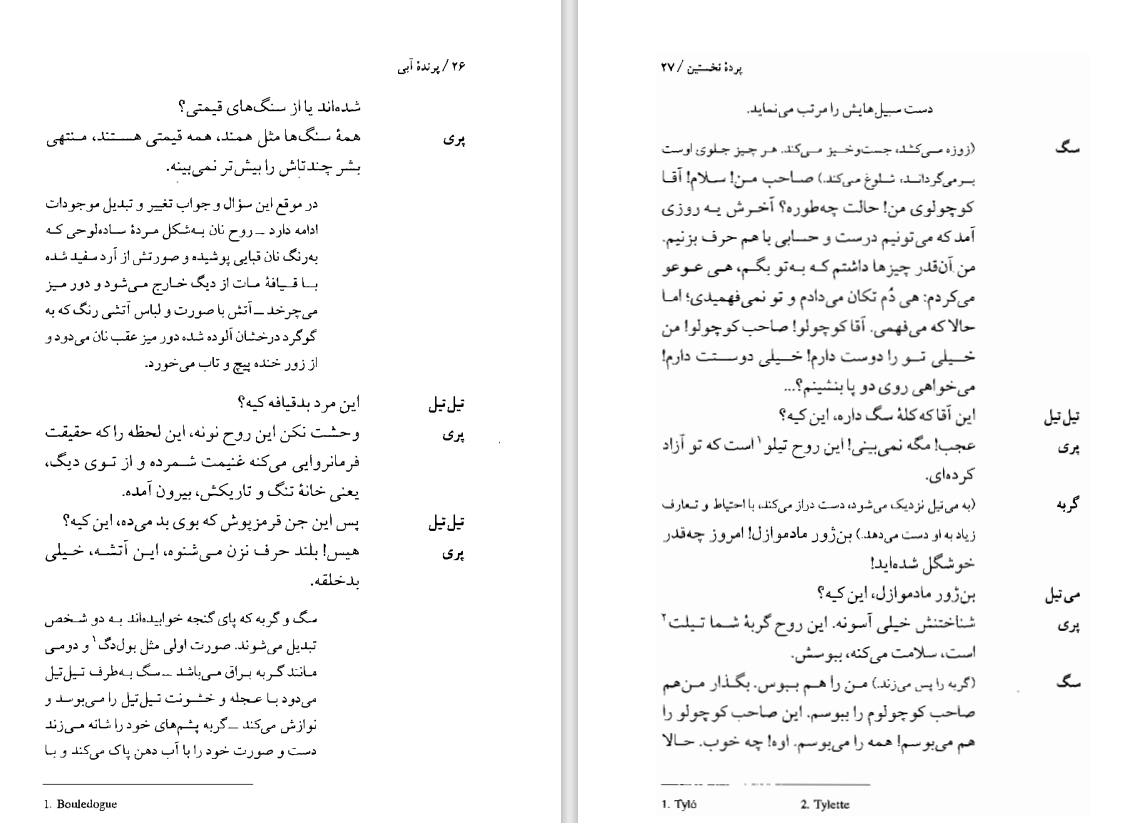 ۲۶ / پرندهٔ آبی
شده‌اند یا از سنگ‌های قیمتی؟
پری همهٔ سنگ‌ها مثل همند، همه قیمتی هستند، منتهی
بشر چندتاش را بیش‌تر نمی‌بینه.
در موقع این سؤال و جواب تغییر و تبدیل موجودات
ادامه دارد ــ روح نان به‌شکل مردهٔ ساده‌لوحی که
به‌رنگ نان قبایی پوشیده و صورتش از آرد سفید شده
بـا قـیـافهٔ مـات از دیگ خـارج مـی‌شود و دور میز
می‌چرخد ــ آتش با صورت و لباس آتشی رنگ که به
گوگرد درخشان آلوده شده دور میز عقب نان می‌دود و
از زور خنده پیچ و تاب می‌خورد.
تیل‌تیل این مرد بدقیافه کیه؟
پری وحشت نکن این روح نونه، این لحظه را که حقیقت
فرمانروایی می‌کنه غنیمت شمرده و از توی دیگ،
یعنی خانهٔ تنگ و تاریکش، بیرون آمده.
تیل‌تیل پس این جن قرمزپوش که بوی بد می‌ده، این کیه؟
پری هیس! بلند حرف نزن می‌شنوه، این آتشه، خیلی
بدخلقه.
سگ و گربه که پای گنجه خوابیده‌اند به دو شخص
تبدیل می‌شوند. صورت اولی مثل بول‌دگ۱ و دومی
مانند گربه براق می‌باشد ــ سگ به‌طرف تیل‌تیل
می‌دود بـا عـجله و خشـونت تیل‌تیل را می‌بوسد و
نوازش می‌کند ــ گربه پشم‌های خود را شانه می‌زند
دست و صورت خود را با آب دهن پاک می‌کند و بـا
1. Bouledogue
پردهٔ نخستین / ۲۷
دست سبیل‌هایش را مرتب می‌نماید.
سگ (زوزه می‌کشد، جست‌وخیز می‌کند. هر چیز جلوی اوست
برمی‌گرداند، شلوغ می‌کند.) صاحب من! سلام! آقا
کوچولوی من! حالت چه‌طوره؟ آخرش یه روزی
آمد که می‌تونیم درست و حسابی با هم حرف بزنیم.
من آن‌قدر چیزها داشتم که به‌تو بگم، هی عوعو
می‌کردم: هی دُم تکان می‌دادم و تو نمی‌فهمیدی؛ اما
حالا که می‌فهمی. آقا کوچولو! صاحب کوچولو! من
خـیـلی تـو را دوست دارم! خـیلی دوستت دارم!
می‌خواهی روی دو پا بنشینم؟...
تیل‌تیل این آقا که کلهٔ سگ داره، این کیه؟
پری عجب! مگه نمی‌بینی! این روح تیلو۱ است که تو آزاد
کرده‌ای.
گربه (به می‌تیل نزدیک می‌شود، دست دراز می‌کند، با احتیاط و تعارف
زیاد به او دست می‌دهد.) بن‌ژور مادموازل! امروز چه‌قدر
خوشگل شده‌اید!
می‌تیل بن‌ژور مادموازل، این کیه؟
پری شناختنش خیلی آسونه. این روح گربهٔ شـما تیلت۲
است، سلامت می‌کنه، ببوسش.
سگ (گربه را پس می‌زند.) من را هم ببوس. بگذار من‌هم
صاحب کوچولوم را ببوسم. این صاحب کوچولو را
هم می‌بوسم! همه را می‌بوسم. اوه! چه خوب. حـالا
1. Tylô 2. Tylette